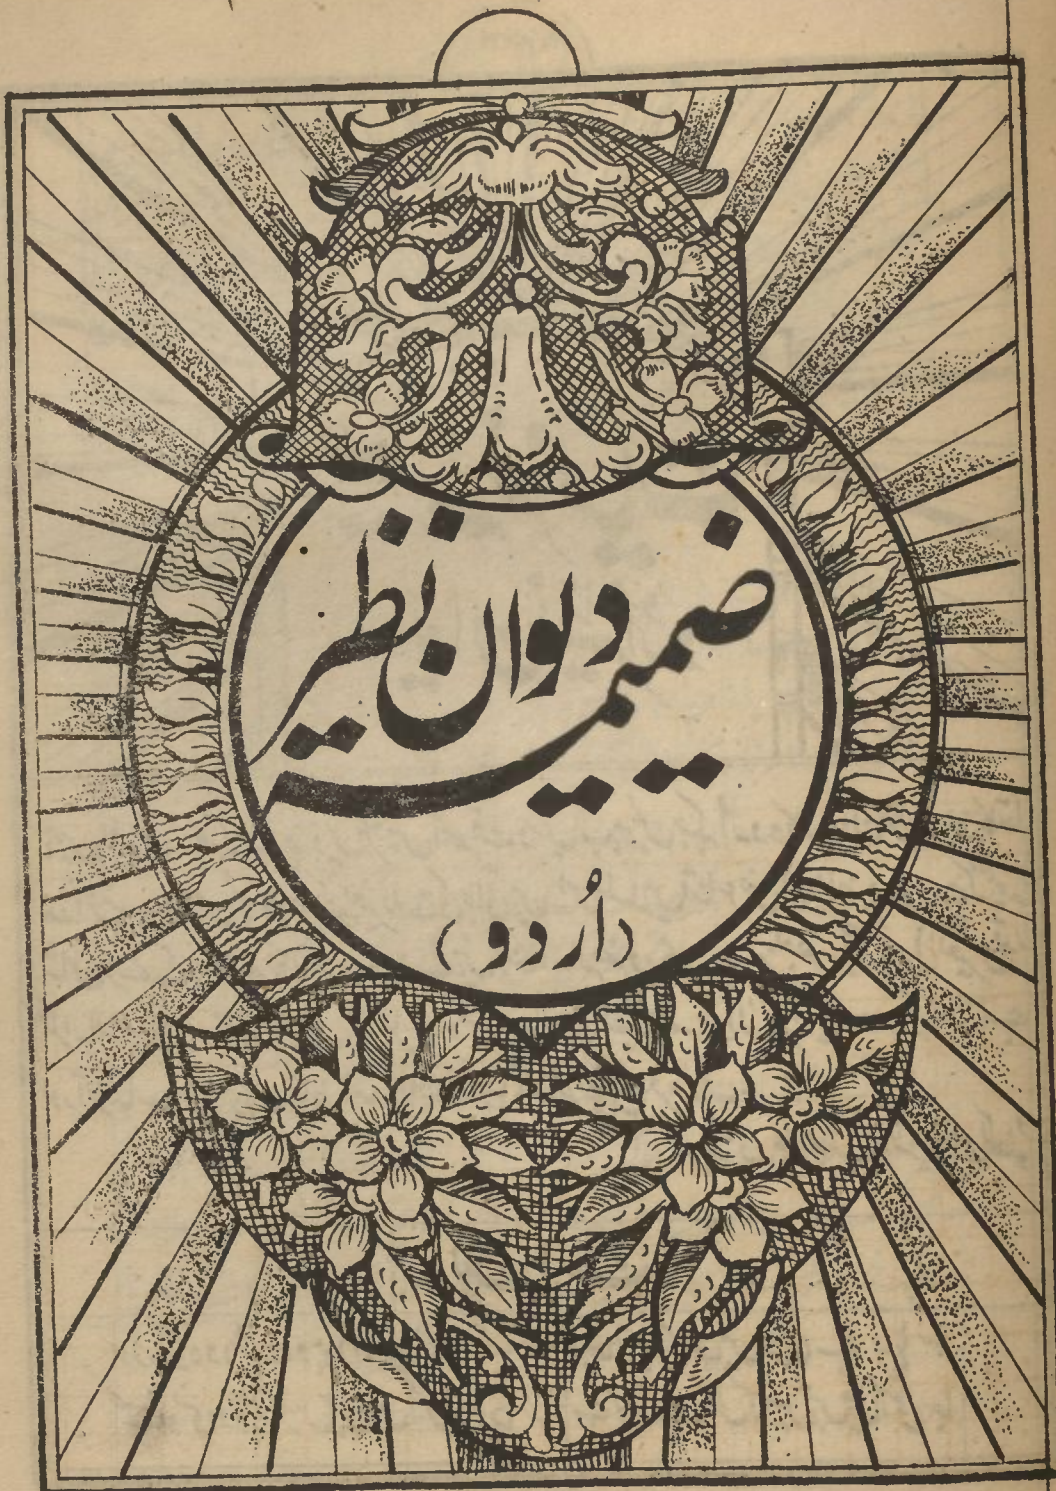 ضمیمہ دیوان نظیر
(اُردو)